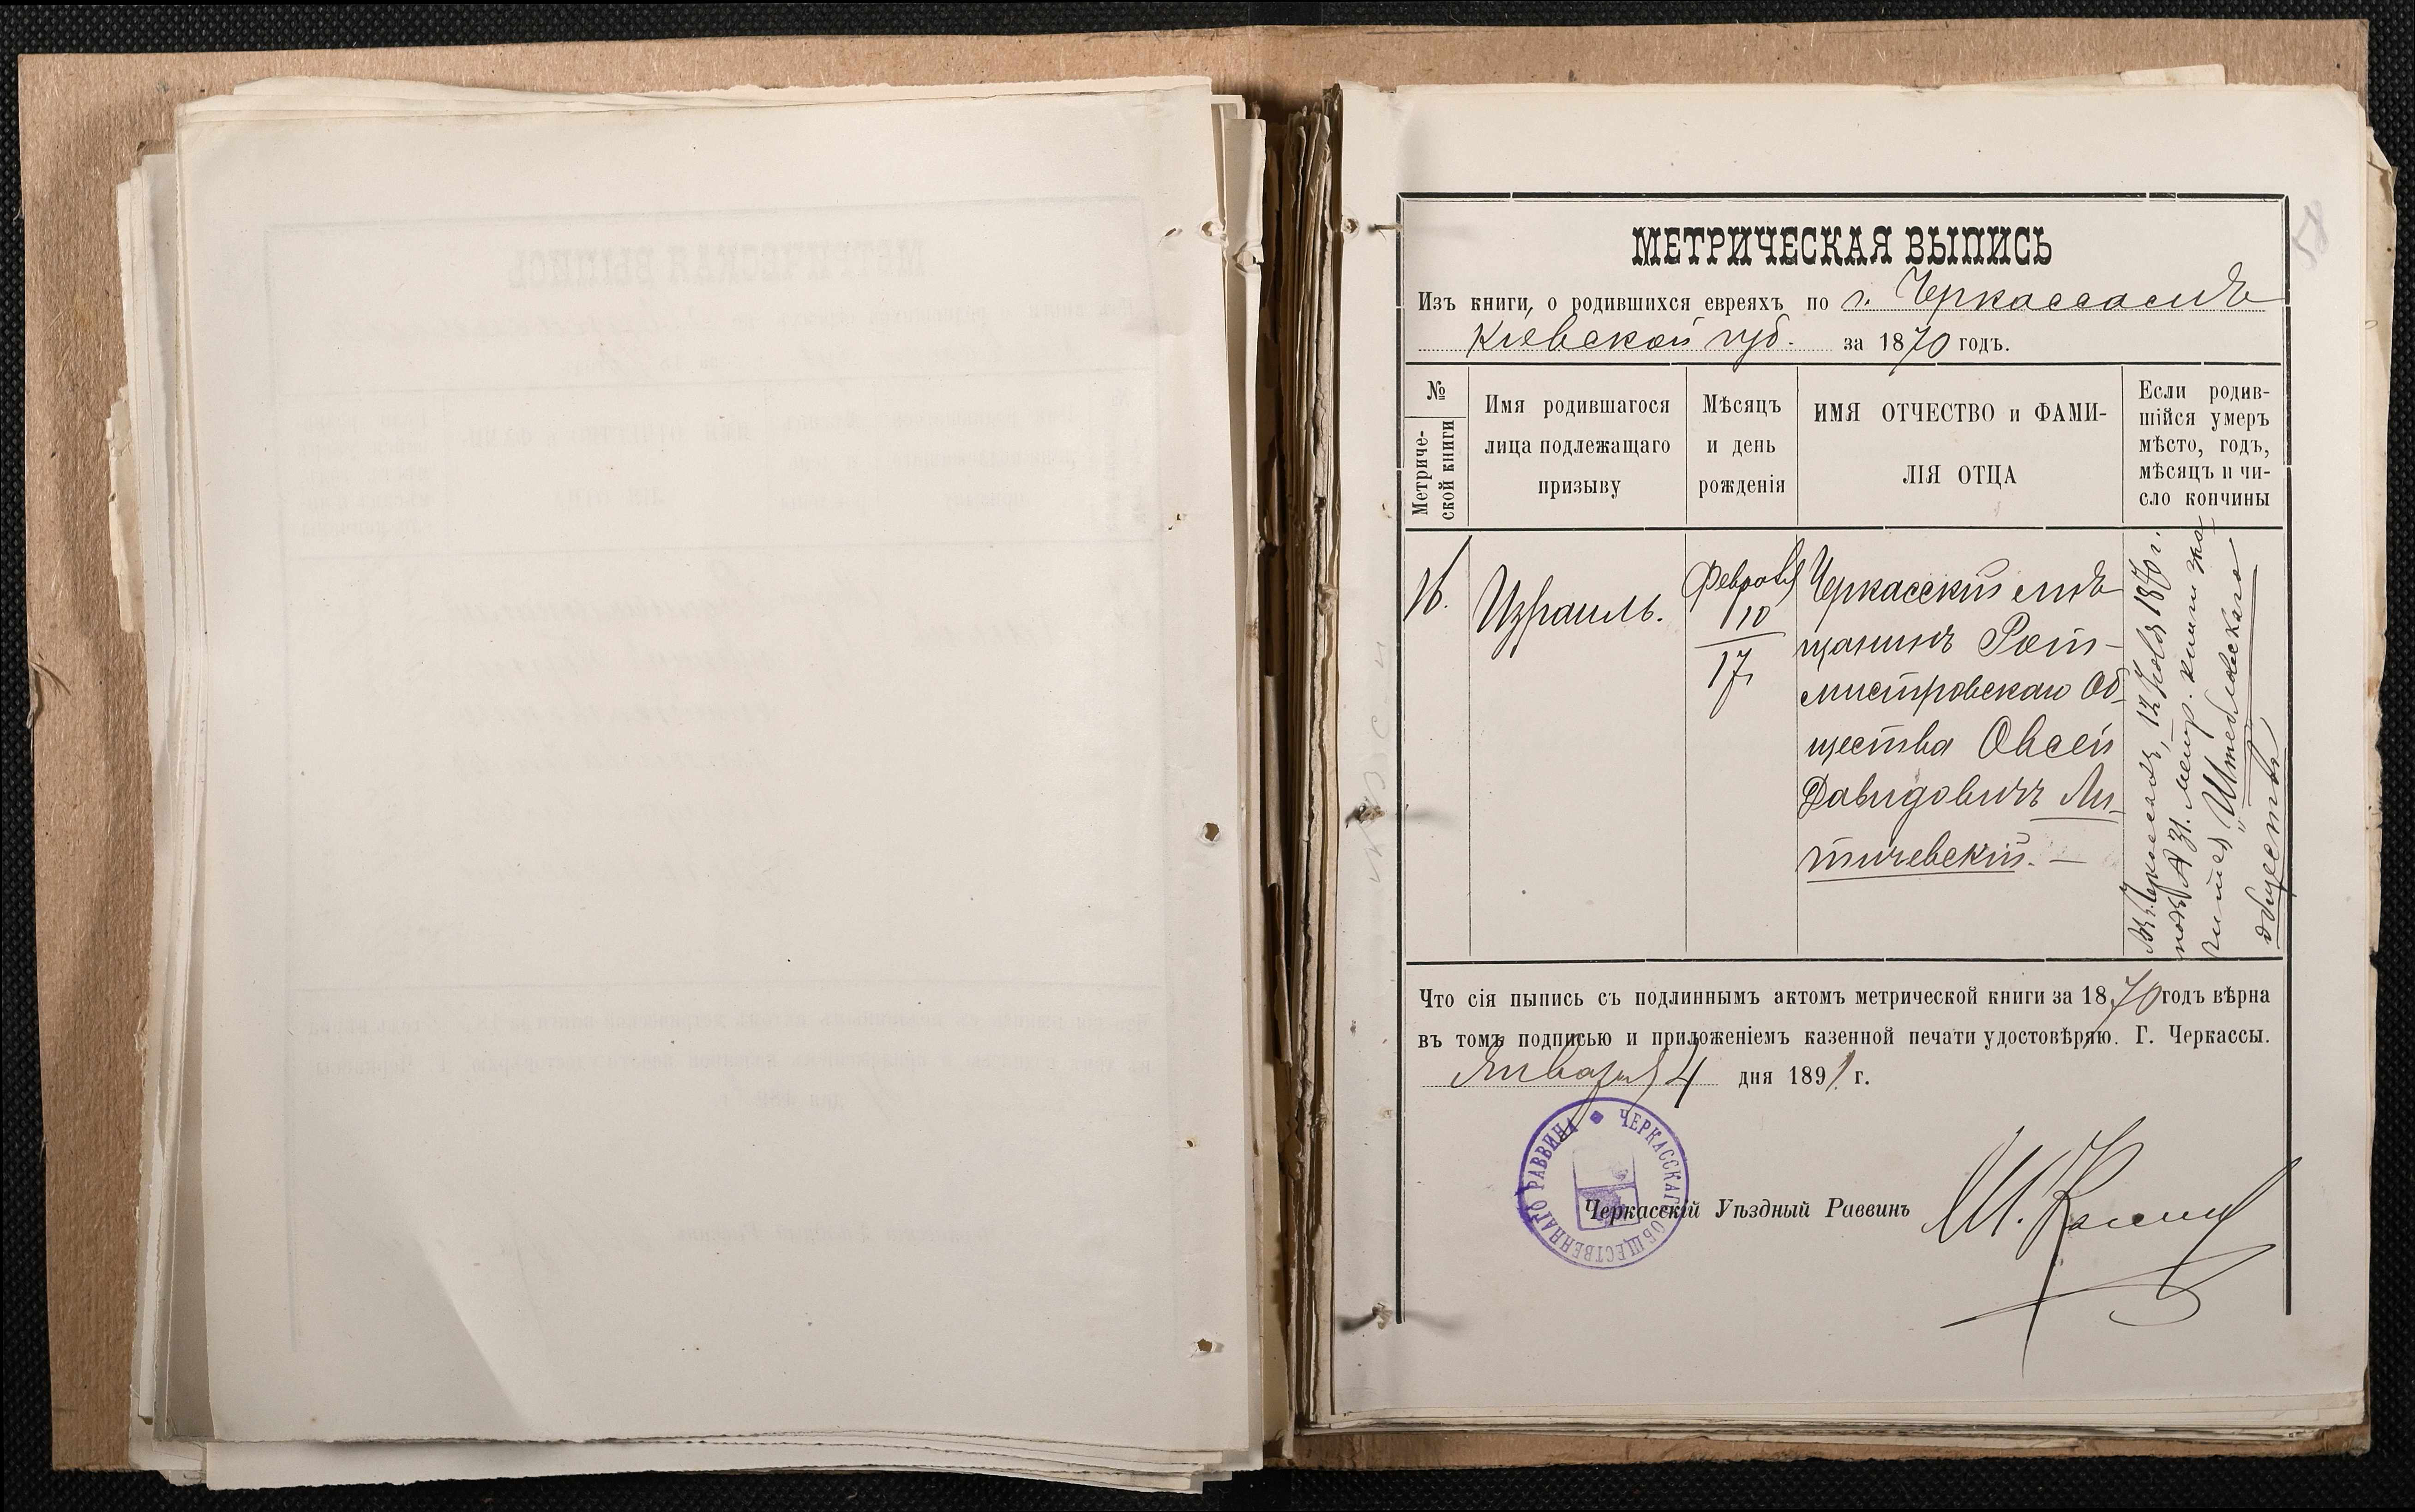 58
МЕТРИЧЕСКАЯ ВЫПИСЬ
Изъ книги, о родившихся евреяхъ по г. Черкассамъ
Кіевской губ. за 1870 годъ.
№
Метриче-
ской книги
Имя родившагося
лица подлежащаго
призыву
Мѣсяцъ
и день
рожденія
ИМЯ ОТЧЕСТВО и ФАМИ-
ЛІЯ ОТЦА
Если родив-
шійся умеръ
мѣсто, годъ,
мѣсяцъ и чи-
сло кончины
16.
Израиль.
Февраля
10
17
Черкасскій мѣ-
щанинъ Рот-
мистровскаго Об-
щества Овсей
Давидовичъ Ли-
тичевскій. —
Въ г. Черкассахъ, 12 1870 г.
подъ № 31. метр. книги
Штеблавскаго
общества
Что сія пыпись съ подлиннымъ актомъ метрической книги за 1870 годъ вѣрна
въ томъ подписью и приложеніемъ казенной печати удостовѣряю. Г. Черкассы.
Января 4 дня 1891 г.
ЧЕРКАССКАГО ОБЩЕСТВЕННАГО РАВВИНА
Черкасскій Уѣздный Раввинъ